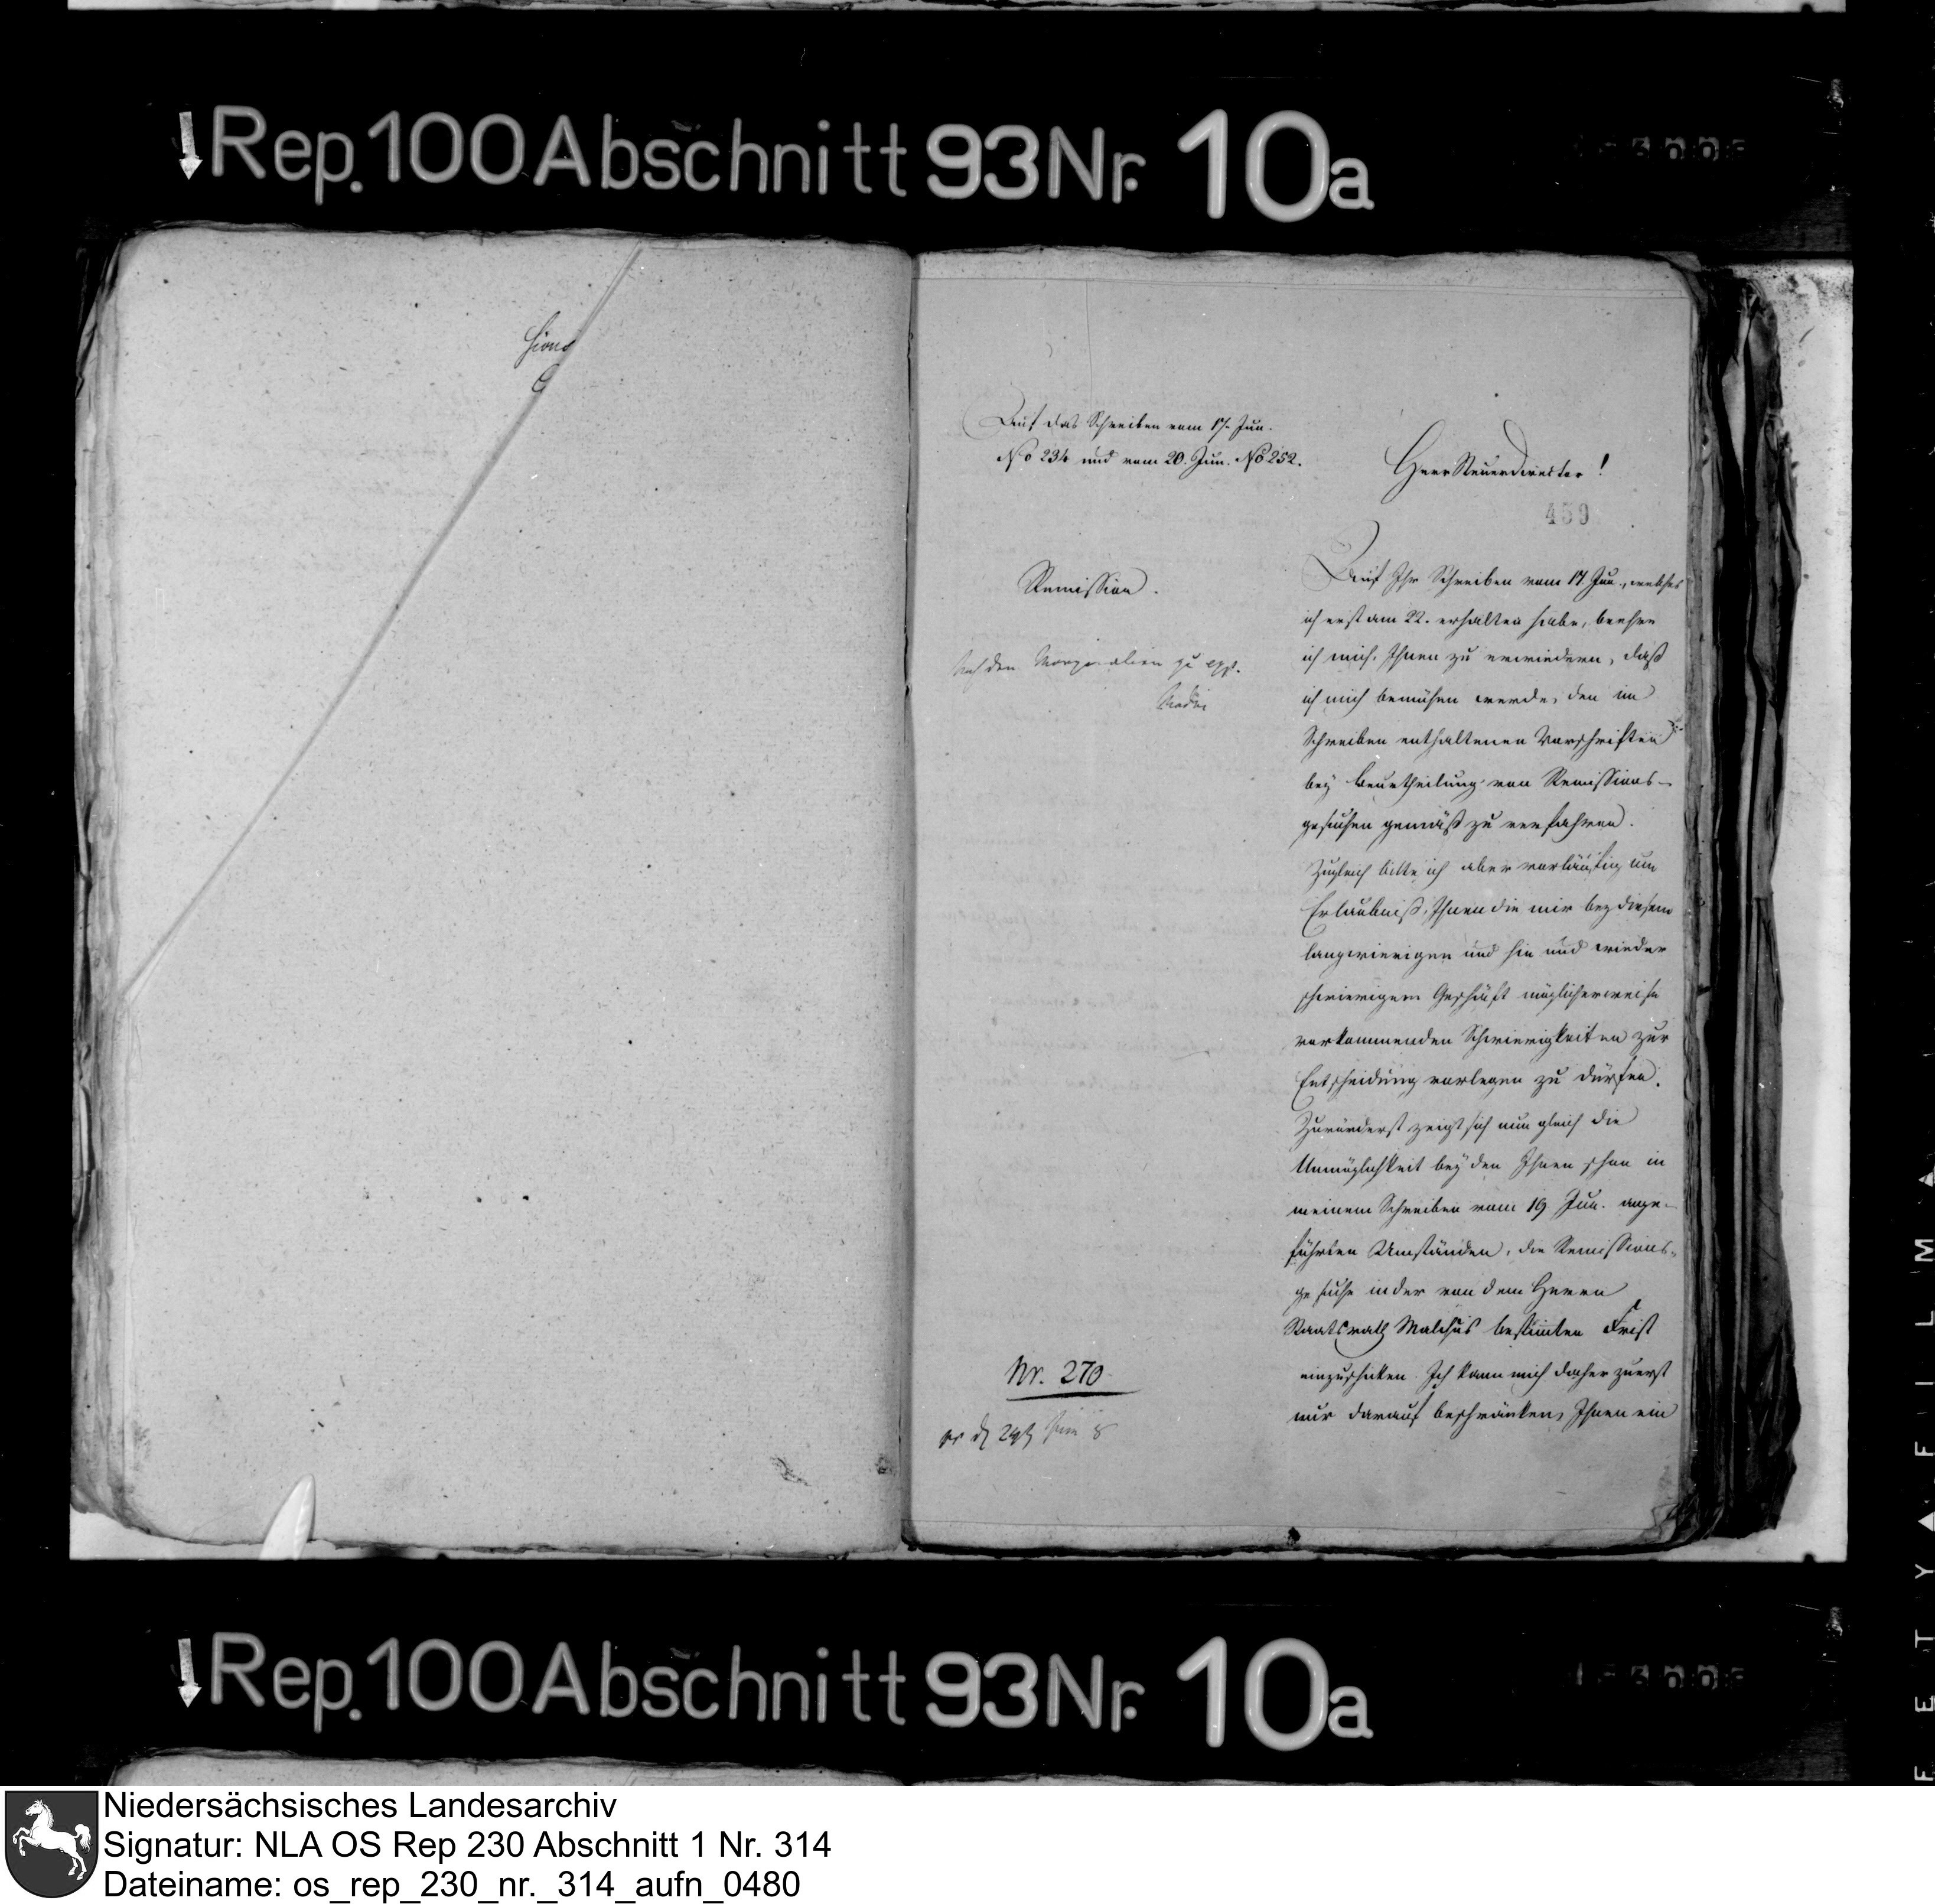 Rep. 100 Abschnitt 93 Nr. 10a
Auf das Schreiben vom 17. Jun.
No 234 und vom 20. Jun. No 252.
Herr Steuerdirector!
459
Remission.
Nach den Marginalien zu exp.
Auf Ihr Schreiben vom 17. Jun., welches
ich erst am 22. erhalten habe, beehre
ich mich, Ihnen zu erwiedern, daß
ich mich bemühen werde, den im
Schreiben enthaltenen Vorschriften
bey Beurtheilung von Remissions-
gesuchen gemäß zu verfahren.
Zugleich bitte ich aber vorläufig um
Erlaubniß, Ihnen die mir bey diesem
langwierigen und hin und wieder
schwierigem Geschäft möglicherweise
vorkommenden Schwierigkeiten zur
Entscheidung vorlegen zu dürfen.
Zuvörderst zeigt sich nun gleich die
Unmöglichkeit bey den Ihnen schon in
meinem Schreiben vom 19 Jun. ange-
führten Umständen, die Remissions-
gesuche in der von dem Herrn
Staatsrath Malchus bestimten Frist
einzuschicken. Ich kann mich daher zuerst
nur darauf beschränken, Ihnen ein
Nr. 270
Rep. 100 Abschnitt 93 Nr. 10a
Niedersächsisches Landesarchiv
Signatur: NLA OS Rep 230 Abschnitt 1 Nr. 314
Dateiname: os_rep_230_nr._314_aufn_0480